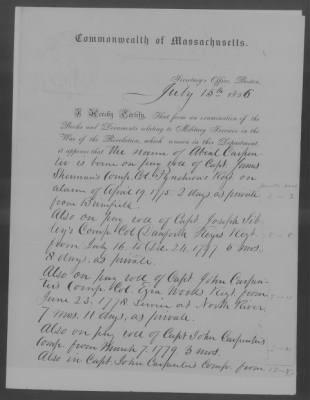 Commonwealth of Massachusetts.
Secretary's Office, Boston,
July 15th 1856
I Hereby Certify, That from an examination of the
Books and Documents relating to Military Services in the
War of the Revolution, which remain in this Department,
it appears that the name of Abial Carpen-
ter is borne on pay roll of Capt. James
Sherman's Comp. Col. Pynchon's Regt. on
alarm of April 19, 1775 2 days, as private
from Brimfield.
Also on pay roll of Capt. Joseph Sib-
ley's Comp. Col. Danforth Keyes Regt.
from July 16 to Dec. 24, 1777 6 mos.
8 days, as private.
Also on pay roll of Capt. John Carpen-
ter's Comp. Col. Ezra Wood's Regt. from
June 23, 1778 Service at North River
7 mos. 11 days, as private.
Also on pay roll of Capt John Carpenter's
Comp. from March 7, 1779 3 mos.
Also in Capt. John Carpenter's Comp. from